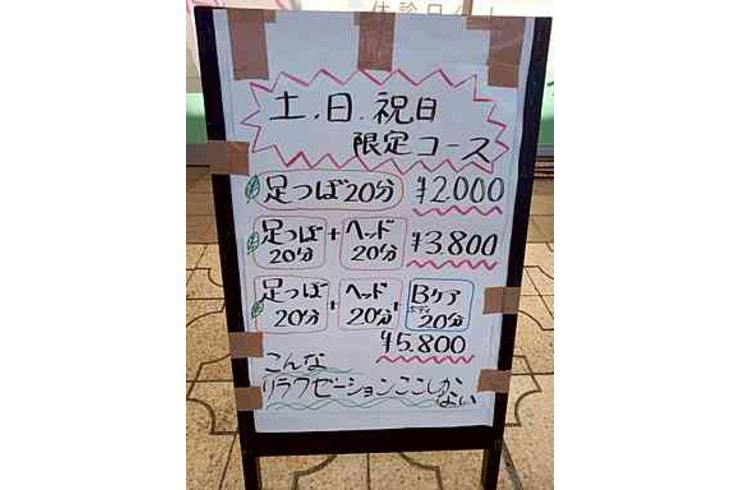 土.日.祝日
限定コース
足つぼ20分 ¥2.000
足つぼ20分 + ヘッド20分 ¥3.800
足つぼ20分 + ヘッド20分 + Bケアボディ20分
¥5.800
こんな
リラフゼーションここしか
ない